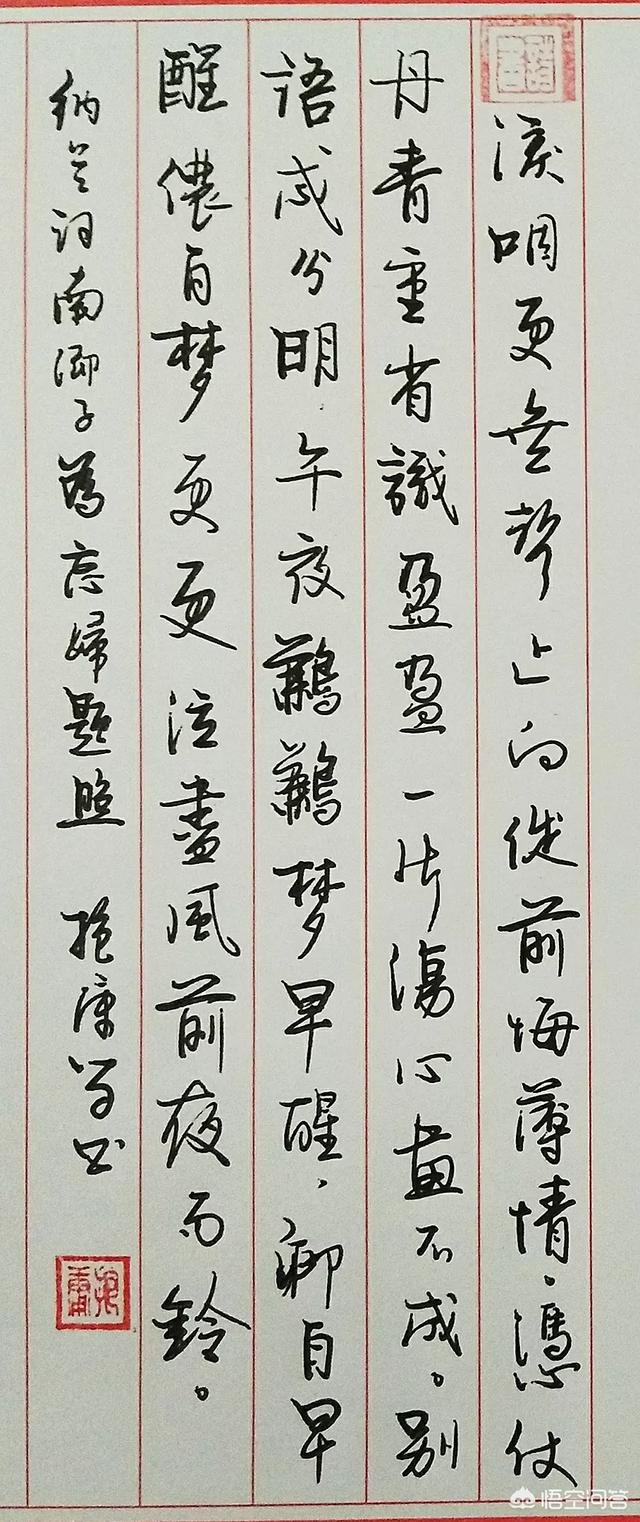 淚咽更無聲止向從前悔薄情、憑仗
丹青重省識盈盈一片傷心畫不成。别
語忒分明、午夜鶼鶼梦早醒、卿自早
醒儂自梦更更泣盡風前夜雨鈴。
納兰詞南鄉子為忘婦題照 抱庸学书
悟空问答